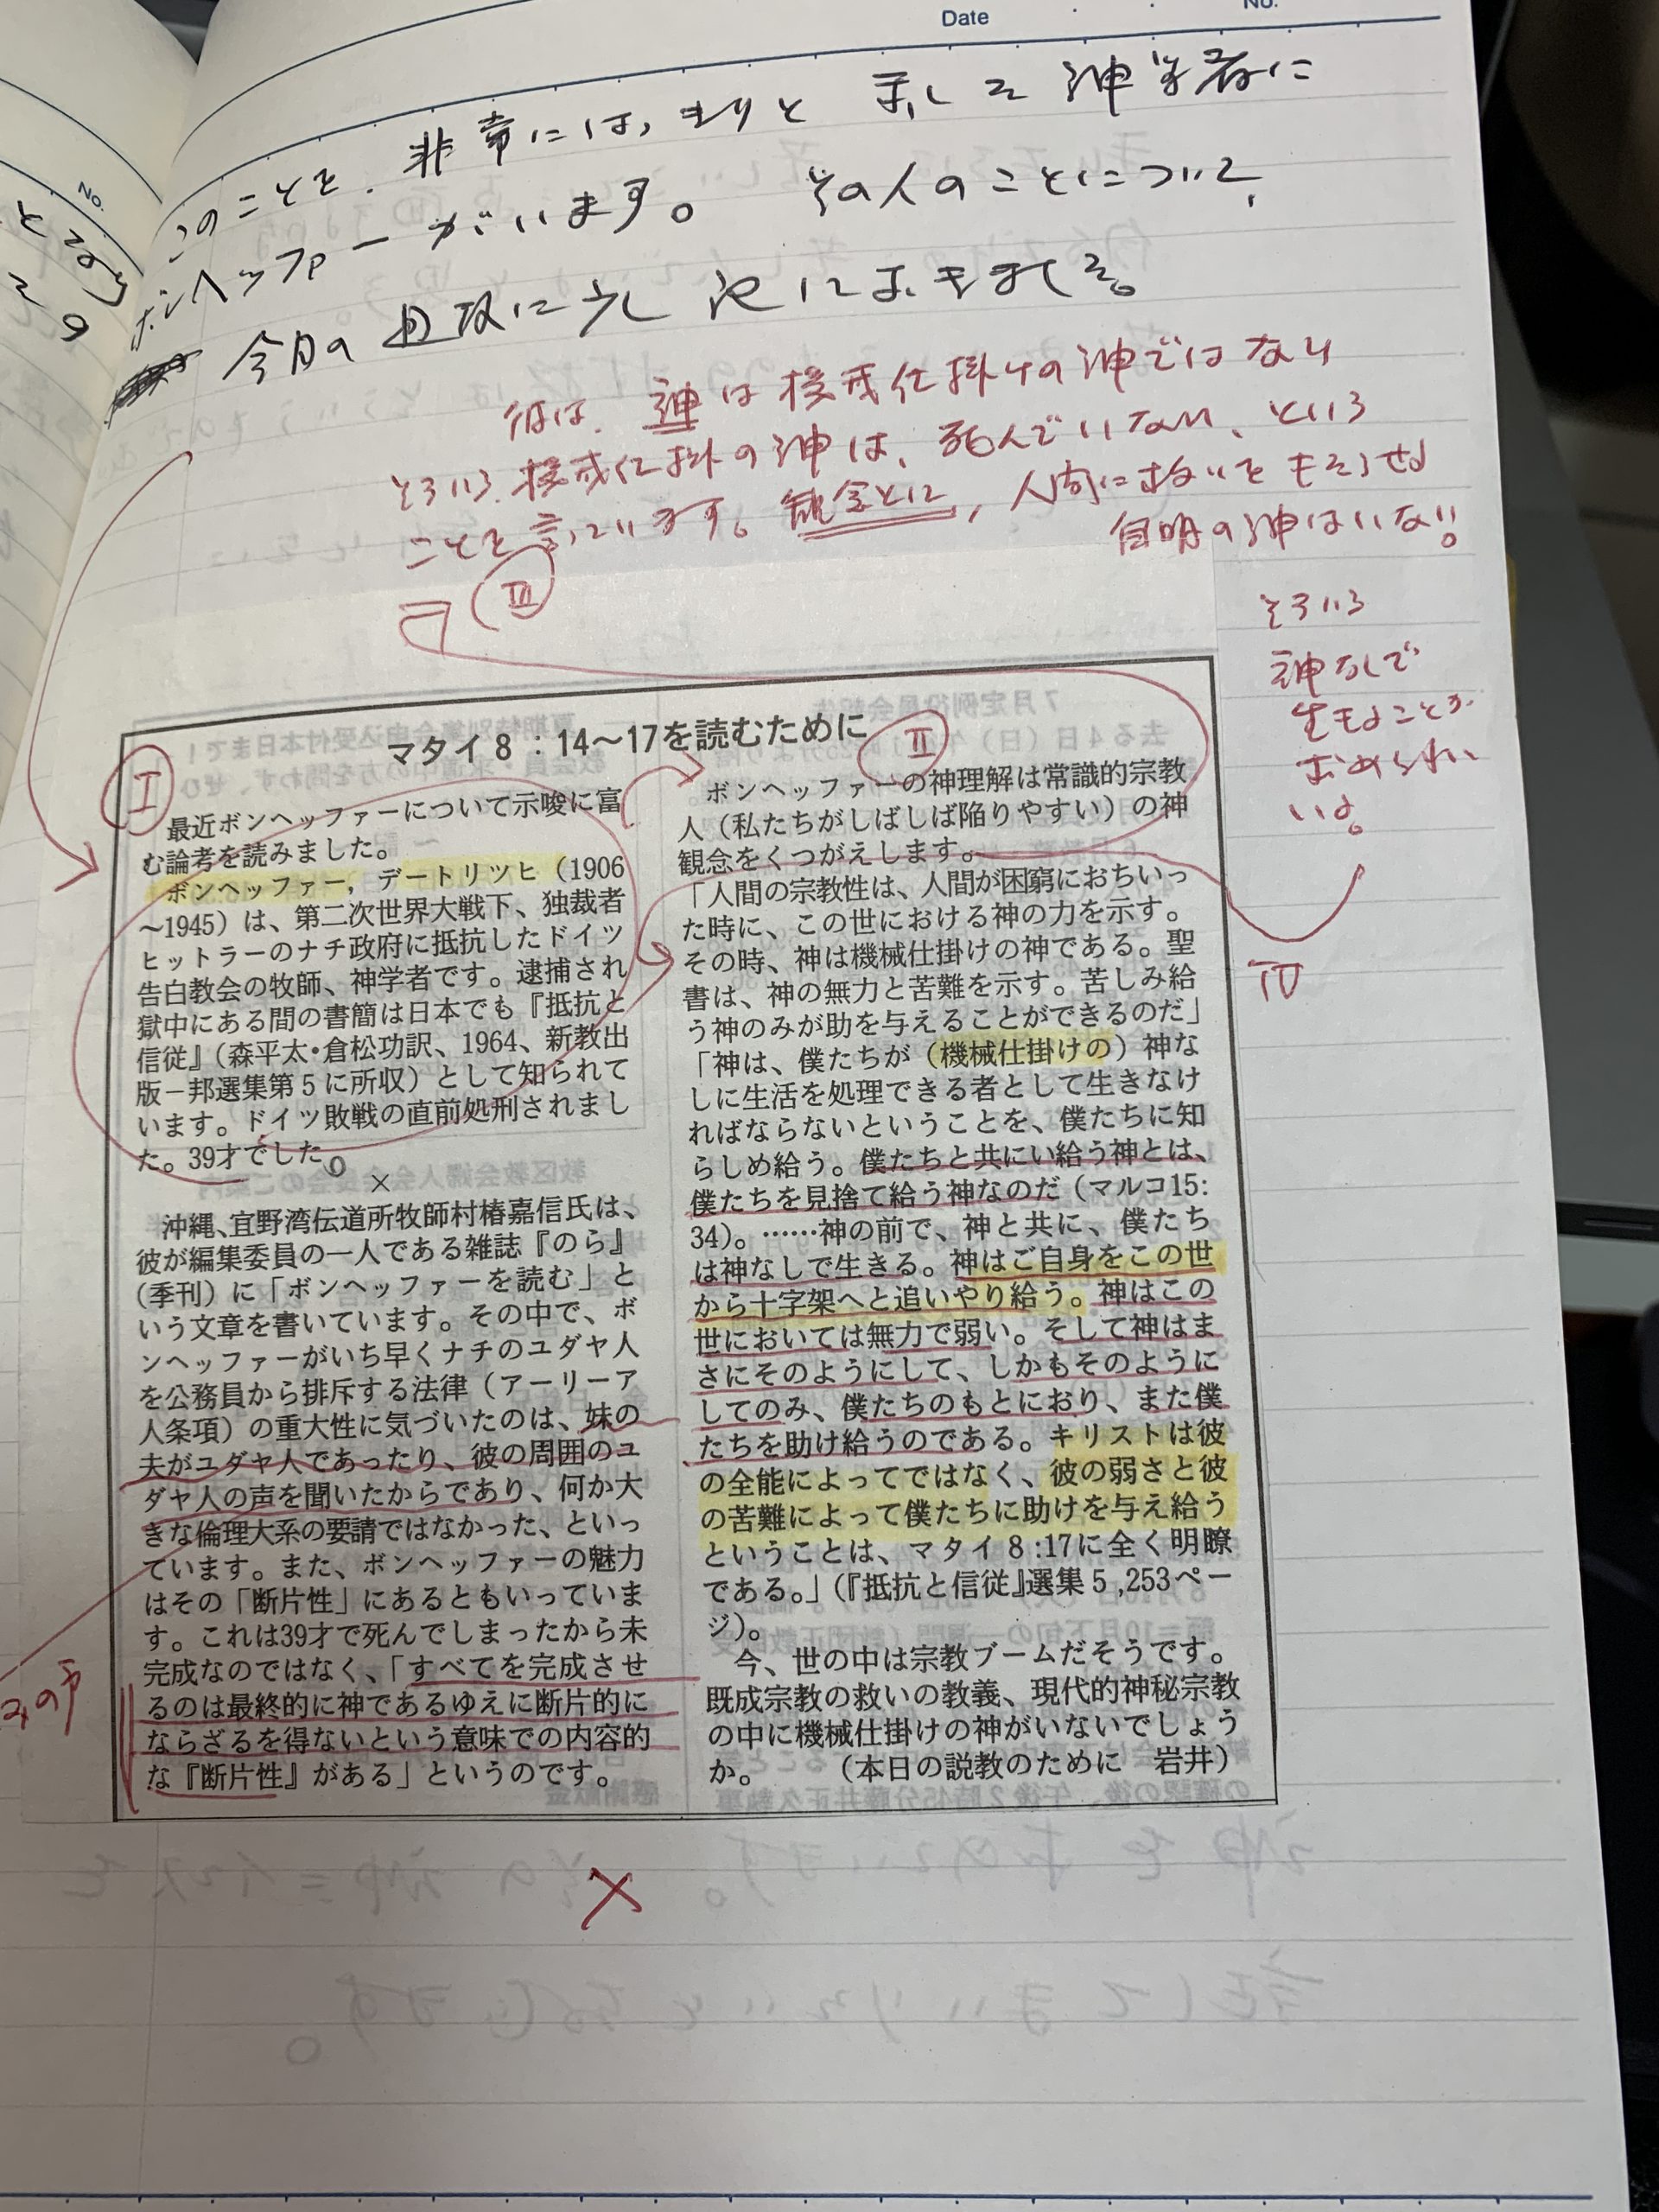 Date
No.
No.
このことを、非常にはっきりと示した神学者に
ボンヘッファーがいます。その人のことについて、
今月の
彼は、神は機械仕掛けの神ではない
そういう機械仕掛の神は、死んでいない、という
ことを言っています。観念とに、人間に救いをもたらせる
自明の神はいない!
そういう
神なしで
生きることが
III
マタイ8:14〜17を読むために
I
最近ボンヘッファーについて示唆に富
む論考を読みました。
ボンヘッファー，デートリツヒ（1906
〜1945）は、第二次世界大戦下、独裁者
ヒットラーのナチ政府に抵抗したドイツ
告白教会の牧師、神学者です。逮捕され
獄中にある間の書簡は日本でも『抵抗と
信従』（森平太・倉松功訳、1964、新教出
版－邦選集第5に所収）として知られて
います。ドイツ敗戦の直前処刑されまし
た。39才でした。
×
沖縄、宜野湾伝道所牧師村椿嘉信氏は、
彼が編集委員の一人である雑誌『のら』
（季刊）に「ボンヘッファーを読む」と
いう文章を書いています。その中で、ボ
ンヘッファーがいち早くナチのユダヤ人
を公務員から排斥する法律（アーリーア
人条項）の重大性に気づいたのは、妹の
夫がユダヤ人であったり、彼の周囲のユ
ダヤ人の声を聞いたからであり、何か大
きな倫理大系の要請ではなかった、といっ
ています。また、ボンヘッファーの魅力
はその「断片性」にあるともいっていま
す。これは39才で死んでしまったから未
完成なのではなく、「すべてを完成させ
るのは最終的に神であるゆえに断片的に
ならざるを得ないという意味での内容的
な『断片性』がある」というのです。
II
ボンヘッファーの神理解は常識的宗教
人（私たちがしばしば陥りやすい）の神
観念をくつがえします。
「人間の宗教性は、人間が困窮におちいっ
た時に、この世における神の力を示す。
その時、神は機械仕掛けの神である。聖
書は、神の無力と苦難を示す。苦しみ給
う神のみが助を与えることができるのだ」
「神は、僕たちが（機械仕掛けの）神な
しに生活を処理できる者として生きなけ
ればならないということを、僕たちに知
らしめ給う。僕たちと共にい給う神とは、
僕たちを見捨て給う神なのだ（マルコ15:
34）。……神の前で、神と共に、僕たち
は神なしで生きる。神はご自身をこの世
から十字架へと追いやり給う。神はこの
世においては無力で弱い。そして神はま
さにそのようにして、しかもそのように
してのみ、僕たちのもとにおり、また僕
たちを助け給うのである。キリストは彼
の全能によってではなく、彼の弱さと彼
の苦難によって僕たちに助けを与え給う
ということは、マタイ8:17に全く明瞭
である。」（『抵抗と信従』選集5,253ペー
ジ）。
今、世の中は宗教ブームだそうです。
既成宗教の救いの教義、現代的神秘宗教
の中に機械仕掛けの神がいないでしょう
か。（本日の説教のために　岩井）
IV
×